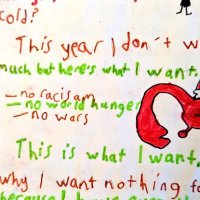 cold?
This year I don't w
much but here's what I want.
- no racisam
- no world hunger
- no wars
This is what I want.
why I want nothing fo